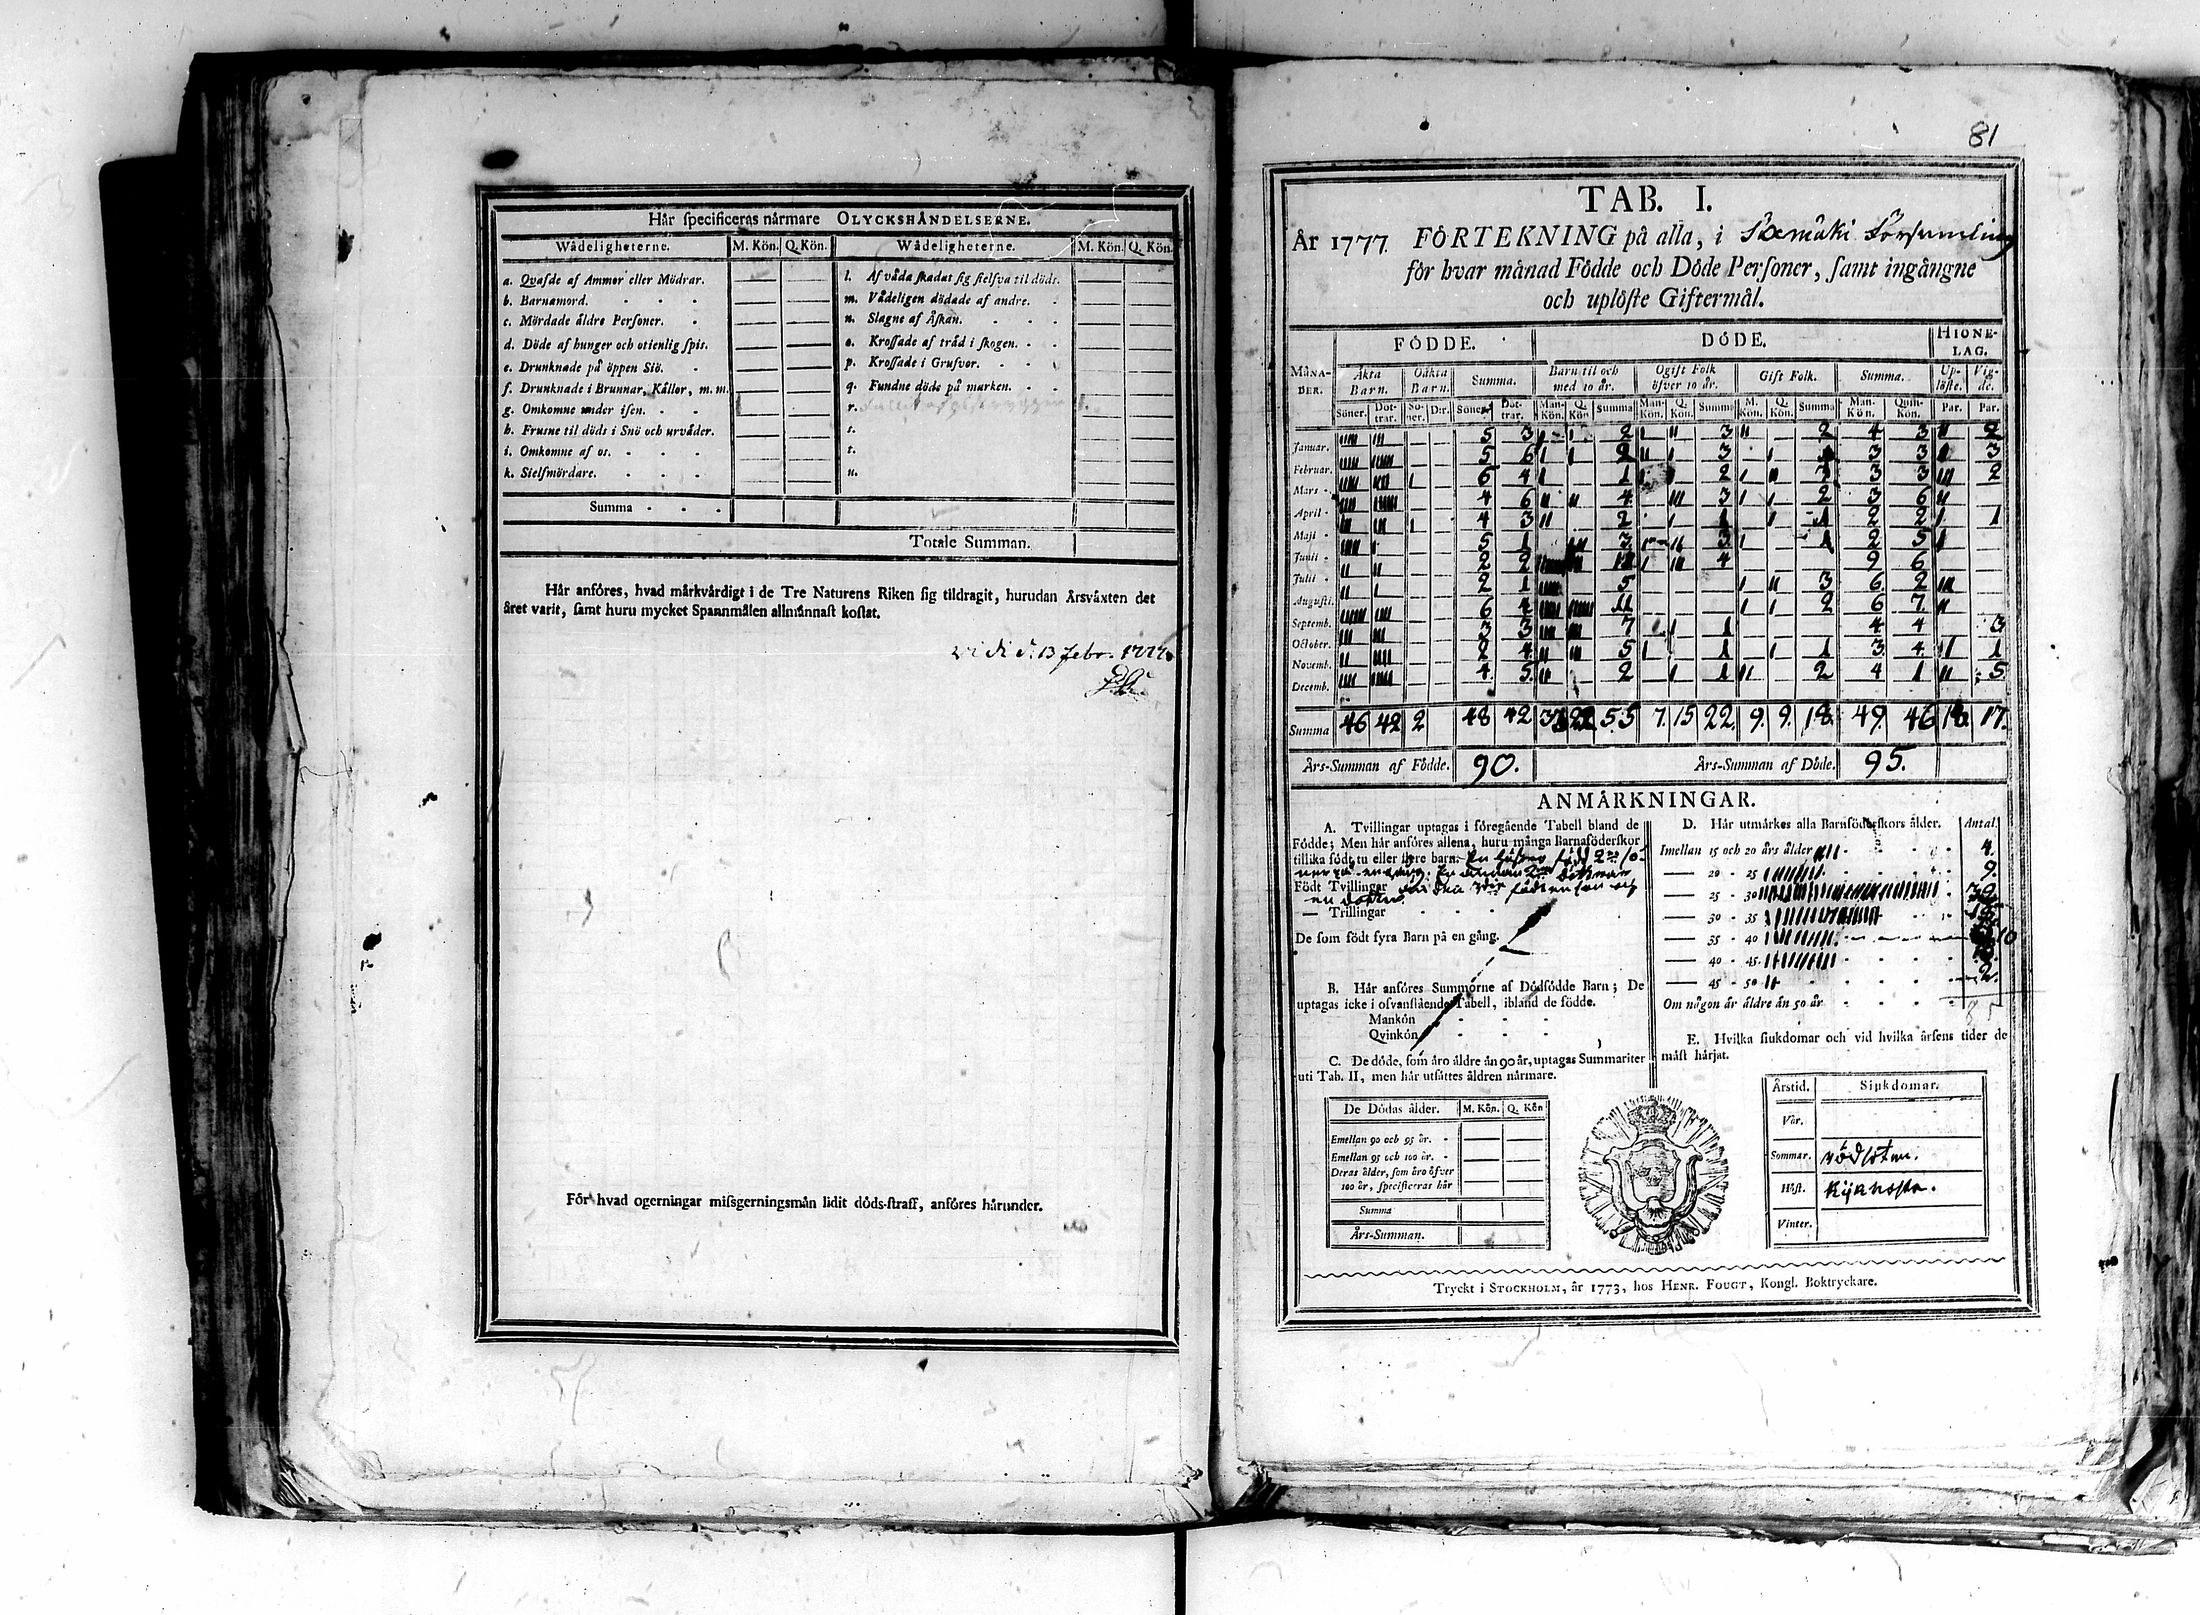 Hår specificeras nårmare OLYCKSHÅNDELSERNE.
Wådeligheterne. M. Kön. Q. Kön. Wådeligheterne. M. Kön. Q. Kön.
a. Qvafde af Ammor eller Mödrar. — — l. Af våda skadat sig sielfva til döds. — —
b. Barnamord. — — m. Vådeligen dödade af andre. — —
c. Mördade äldre Personer. — — n. Slagne af Åskan. — —
d. Döde af hunger och otienlig spis. — — o. Krossade af träd i skogen. — —
e. Drunknade på öppen Siö. — — p. Krossade i Grufvor. — —
f. Drunknade i Brunnar, Kållor, m. m. — — q. Fundne döde på marken. — —
g. Omkomne under isen. r.
h. Frusne til döds i Snö och urväder. s.
i. Omkomne af os. t.
k. Sielfmördare. u.
Summa
Totale Summan.
Hår anföres, hvad mårkvårdigt i de Tre Naturens Riken sig tildragit, hurudan Årsvåxten det
året varit, samt huru mycket Spannmålen allmånnast kostat.
d. 13 febr.
För hvad ogerningar missgerningsmån lidit döds-straff, anföres hårunder.
81
TAB. I.
År 1777 FÖRTEKNING på alla, i Församling
för hvar månad Födde och Döde Personer, samt ingångne
och uplöste Giftermål.
MÅNADER. FÖDDE. DÖDE. HIONELAG.
Äkta Barn. Oäkta Barn. Summa. Barn til och med 10 år. Ogift Folk öfver 10 år. Gift Folk. Summa. Uplöste. Vigde.
Söner. Döttrar. Söner. D:r. Söner. Döttrar. Man-Kön. Q. Kön. Summa Man-Kön. Q. Kön. Summa M. Kön. Q. Kön. Summa Man-Kön. Quin-Kön. Par. Par.
Januar. 5 3 2 3 2 4 3 2
Februar. 5 6 2 3 3 3 3
Mars 6 4 1 2 3 3 2
April 4 6 4 3 2 3 6
Maji 4 3 2 1 1 2 2 1
Junii 5 1 3 3 1 2 5
Julii 2 2 4 6
Augusti. 2 1 5 3 6 2
Septemb. 6 4 11 2 6 7
October. 3 3 7 1 4 4 3
Novemb. 2 4 5 1 1 3 4 1
Decemb. 4 5 2 1 2 4 1 5
Summa 46 42 2 48 42 33 22 55 7. 15 22 9. 9. 18. 49. 46 18. 17.
Års-Summan af Födde. 90. Års-Summan af Döde. 95.
ANMÅRKNINGAR.
A. Tvillingar uptagas i föregående Tabell bland de
Födde; Men hår anföres allena, huru många Barnaföderskor
tillika födt, tu eller flere barn. En födt 2ne
Födt Tvillingar
en dotter.
— Trillingar
De som födt fyra Barn på en gång.
B. Hår anföres Summorne af Dödfödde Barn; De
uptagas icke i ofvanstående Tabell, ibland de födde.
Mankön
Qvinkön
C. De döde, som åro åldre ån 90 år, uptagas Summariter
uti Tab. II, men hår utsåttes åldren nårmare.
De Dödas ålder. M. Kön. Q. Kön
Emellan 90 och 95 år. — —
Emellan 95 och 100 år. — —
Deras ålder, som åro öfver
100 år, specificeras hår — —
Summa
Års-Summan.
D. Hår utmårkes alla Barnföderskors ålder. Antal.
Imellan 15 och 20 års ålder 4.
— 20 - 25 9.
— 25 - 30
— 30 - 35
— 35 - 40 10
— 40 - 45.
— 45 - 50 2.
Om någon år åldre ån 50 år
E. Hvilka siukdomar och vid hvilka årsens tider de
måst hårjat.
Årstid. Siukdomar.
Vår.
Sommar. rödsoten.
Höst.
Vinter.
Tryckt i STOCKHOLM, år 1773, hos HENR. FOUGT, Kongl. Boktryckare.